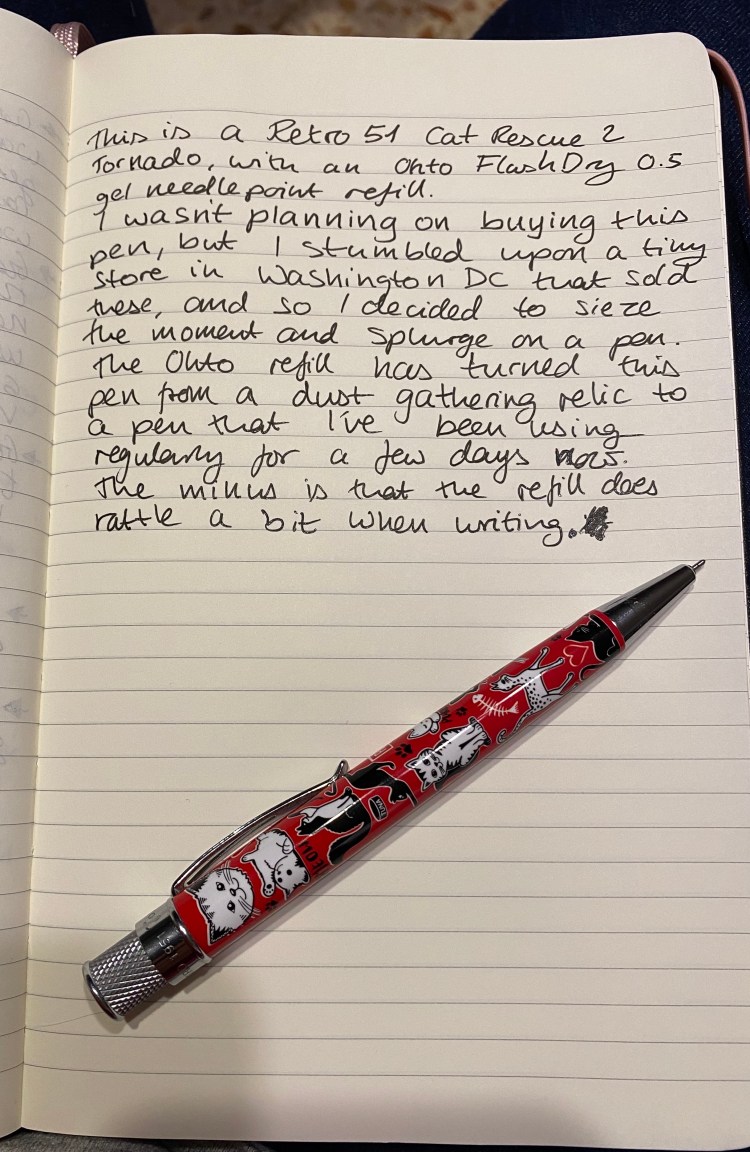 This is a Retro 51 Cat Rescue 2
Tornado, with an Ohto FlashDry 0.5
gel needlepoint refill.
I wasn't planning on buying this
pen, but I stumbled upon a tiny
store in Washington DC that sold
these, and so I decided to sieze
the moment and splurge on a pen.
The Ohto refill has turned this
pen from a dust gathering relic to
a pen that I've been using
regularly for a few days now.
The minus is that the refill does
rattle a bit when writing.
TUNA
1951